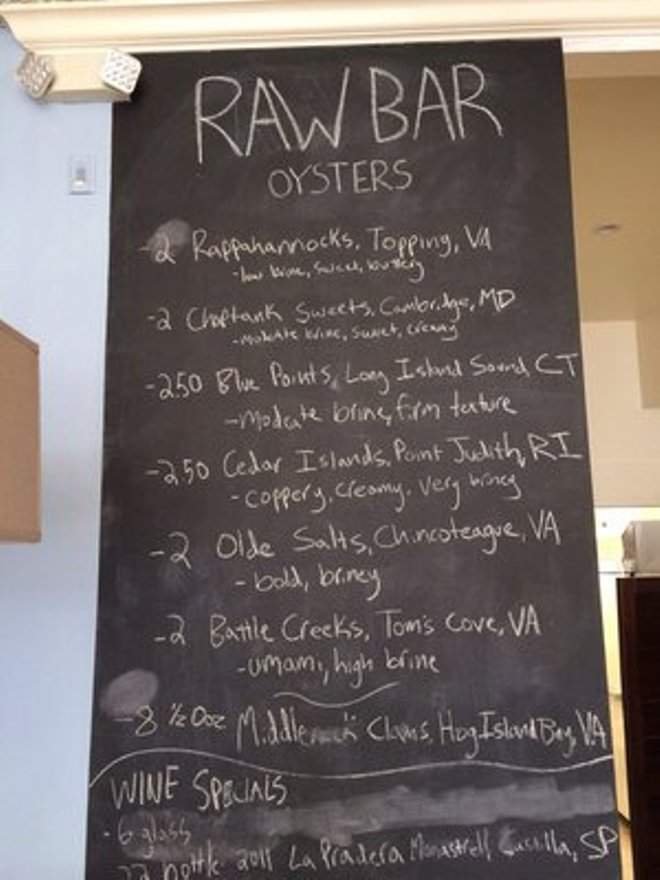 RAW BAR
OYSTERS
-2 Rappahannocks, Topping, VA
-low brine, sweet, buttery
-2 Choptank Sweets, Cambridge, MD
-moderate brine, sweet, creamy
-2.50 Blue Points, Long Island Sound CT
-Moderate brine, firm texture
-2.50 Cedar Islands, Point Judith, RI
-coppery, creamy, very briney
-2 Olde Salts, Chincoteague, VA
-bold, briney
-2 Battle Creeks, Tom's Cove, VA
-umami, high brine
-8 1/2 Doz Middleneck Clams, Hog Island Bay, VA
WINE SPECIALS
-6 glass
22 bottle 2011 La Pradera Monastrell, Castilla, SP